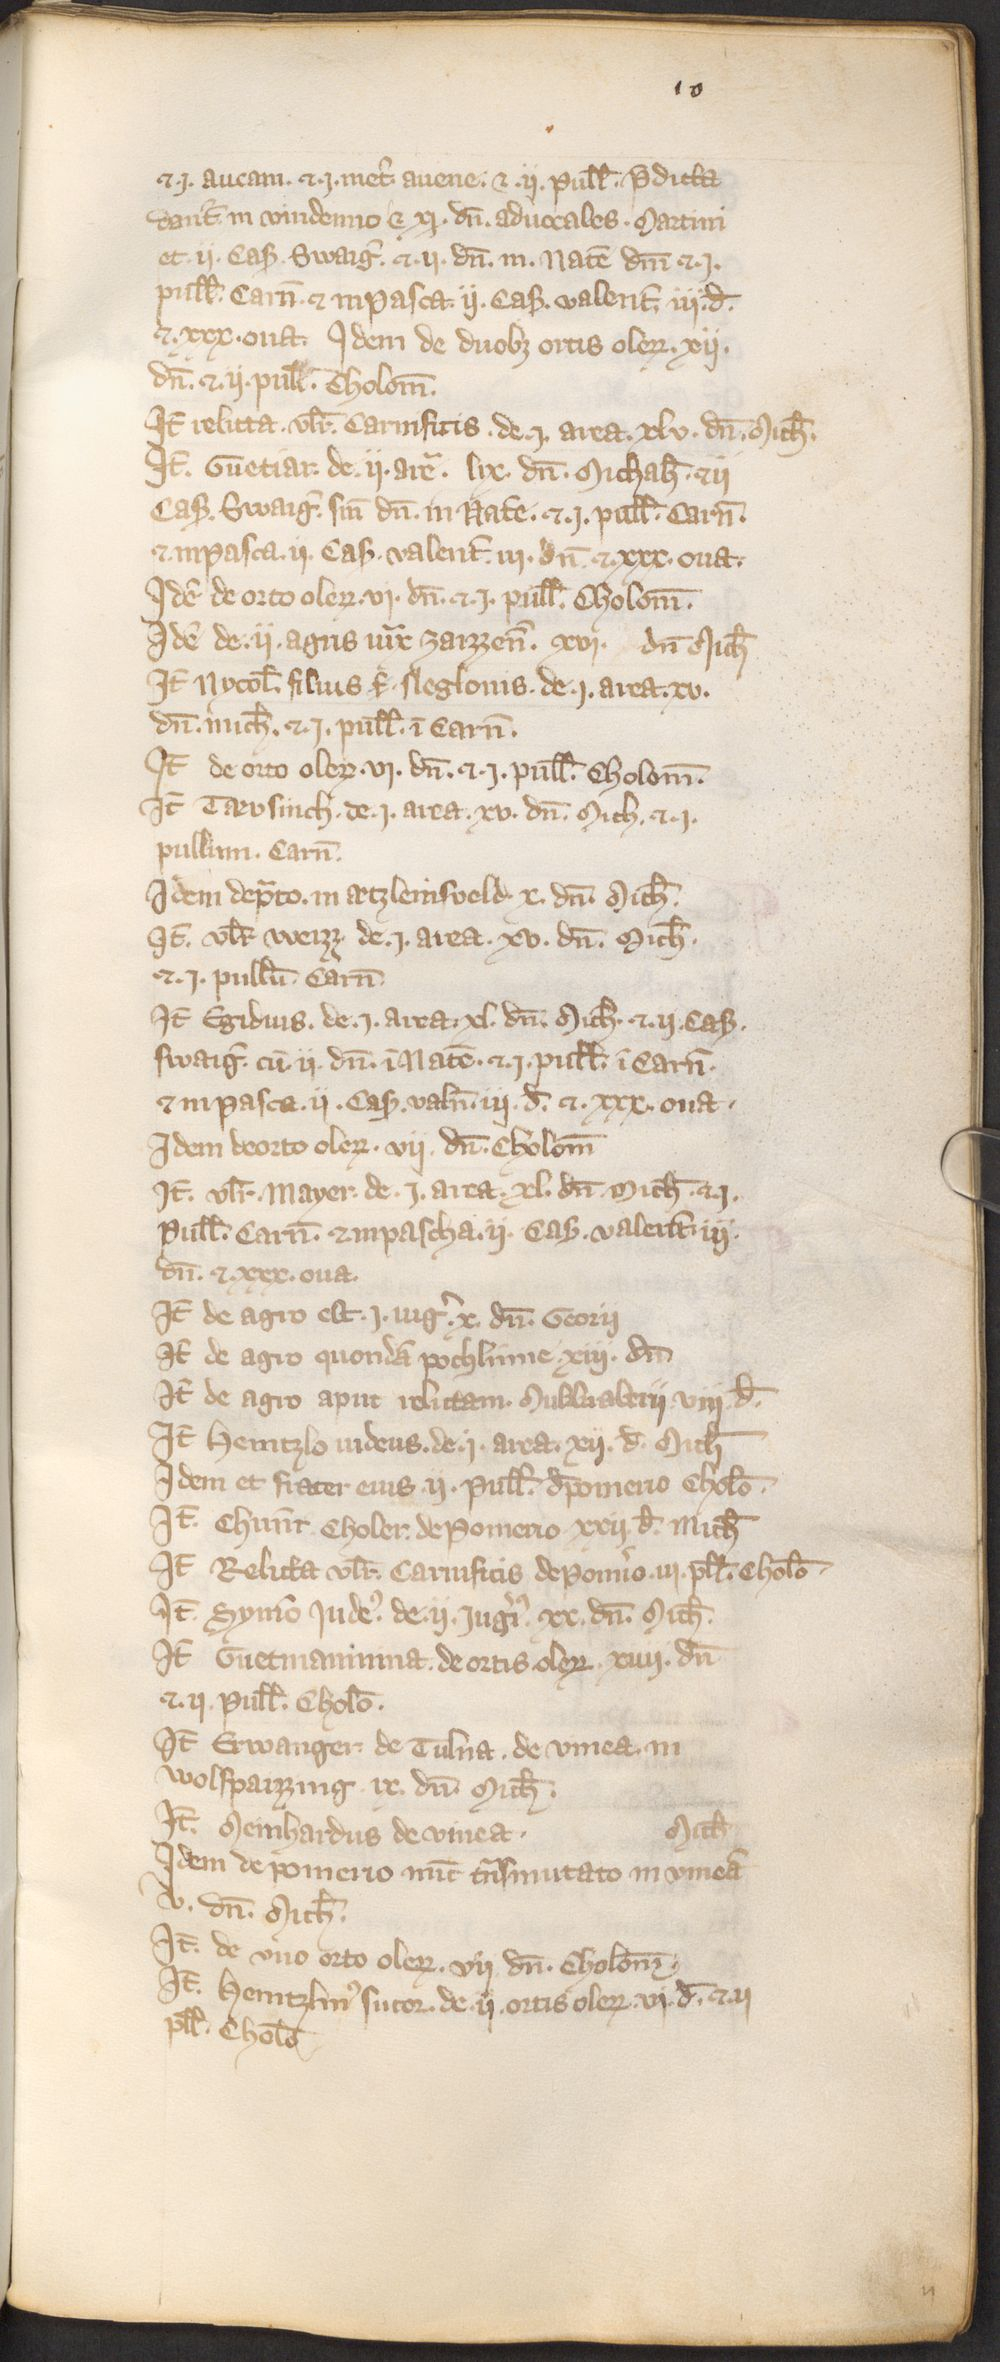 10
⁊ .j. aucam . ⁊ .j. metr̄ auene . ⁊ .ij. pull̄ . p̄dicta
dant̄ in vindemio ⁊ xj . dn̄ . aduocales . Martini
et .ij. Cas . Swaiḡ . ⁊ .ij. dn̄ . in . Natē dn̄i ⁊ .j.
pull̄ . Carn̄ . ⁊ in pasca .ij. Cas . valent̄ iij . d̄ .
⁊ .xxx . oua . Idem de duobꝫ ortis oleꝝ . xij .
dn̄ . ⁊ .ij. pull̄ . Cholom̄ .
It̄ relicta . vlr̄ . Carnificis . de .j. area . xlv . dn̄ . Mich̄ .
It̄ . Guetiar . de .ij. are . lix . dn̄ . Michah̄ . ⁊ ij
Cas . Swaiḡ . sin̄ dn̄ . in Natē . ⁊ .j. pull̄ . Carn̄ .
⁊ in pasca .ij. Cas . valent̄ . iij . dn̄ . ⁊ .xxx . oua .
Idē de orto oleꝝ . vj . dn̄ . ⁊ .j. pull̄ . Cholom̄ .
Idē de .ij. agris iux zaizzen̄ . xvi . dn̄ Mich̄
It̄ Nycol̄ . filius sleglonis . de .j. area . xv .
dn̄ . mich̄ . ⁊ .j. pull̄ . ī Carn̄ .
It̄ de orto oleꝝ . vj . dn̄ . ⁊ .j. pull̄ . Cholom̄ .
It̄ Tarvsinch . de .j. area . xv . dn̄ . Mich . ⁊ .j.
pullum . Carn̄ .
Idem de prato . in artzleinsveld . x . dn̄ . Mich̄ .
It̄ . vlr̄ weizz de .j. area . xv . dn̄ . Mich̄ .
⁊ .j. pullū Carn̄
It̄ Egidius . de .j. area . xl . dn̄ . Mich̄ . ⁊ .ij. Cas .
swaiḡ . cū .ij. dn̄ . ī Natē . ⁊ .j. pull̄ . ī Carn̄ .
⁊ in pasca .ij. Cas . valn̄ iij . d̄ . ⁊ . xxx . oua .
Idem de orto oleꝝ . vij . dn̄ . Cholom̄
It̄ . vlr̄ . Mayer . de .j. area . xl . dn̄ Mich̄ . ⁊ .j.
pull̄ . Carn̄ . ⁊ in pascha .ij. Cas . valent̄ . iij .
dn̄ . ⁊ . xxx . oua .
It̄ de agro .j. iuḡ . x . dn̄ . Georij
It̄ de agro quondā pochlinne xiij . dn̄
It̄ de agro aput relictam . viij d̄ .
It̄ Heintzlo iudeus . de .j. area . xij . d̄ . Mich̄
Idem et frater eius .ij. pull̄ . d̄ pomerio Cholō .
It̄ . Chunr̄ Choler . de pomerio xxij d̄ . Mich̄
It̄ Relicta vlr̄ . Carnificis de Pomīo . iij . pll̄ . Cholō .
It̄ . Symō Judeꝰ . de .ij. Juḡ . xx . dn̄ . Mich̄ .
It̄ Guetmaninna . de ortis oleꝝ . xiiij . dn̄
⁊ .ij. pull̄ . Cholō .
It̄ Erwanger . de Tulna . de vinea . in
wolfpaizzing . ix . dn̄ Mich̄ .
It̄ . Meinhardus de vinea . Mich̄
Idem de pomerio nūc trāsmutato in vineā
v . dn̄ . Mich̄ .
It̄ . de vno orto oleꝝ . vij dn̄ . Cholom̄ .
It̄ . Heintzlinꝰ sutor . de .ij. ortis oleꝝ . vi . d̄ . ⁊ .ij
pll̄ . Cholō